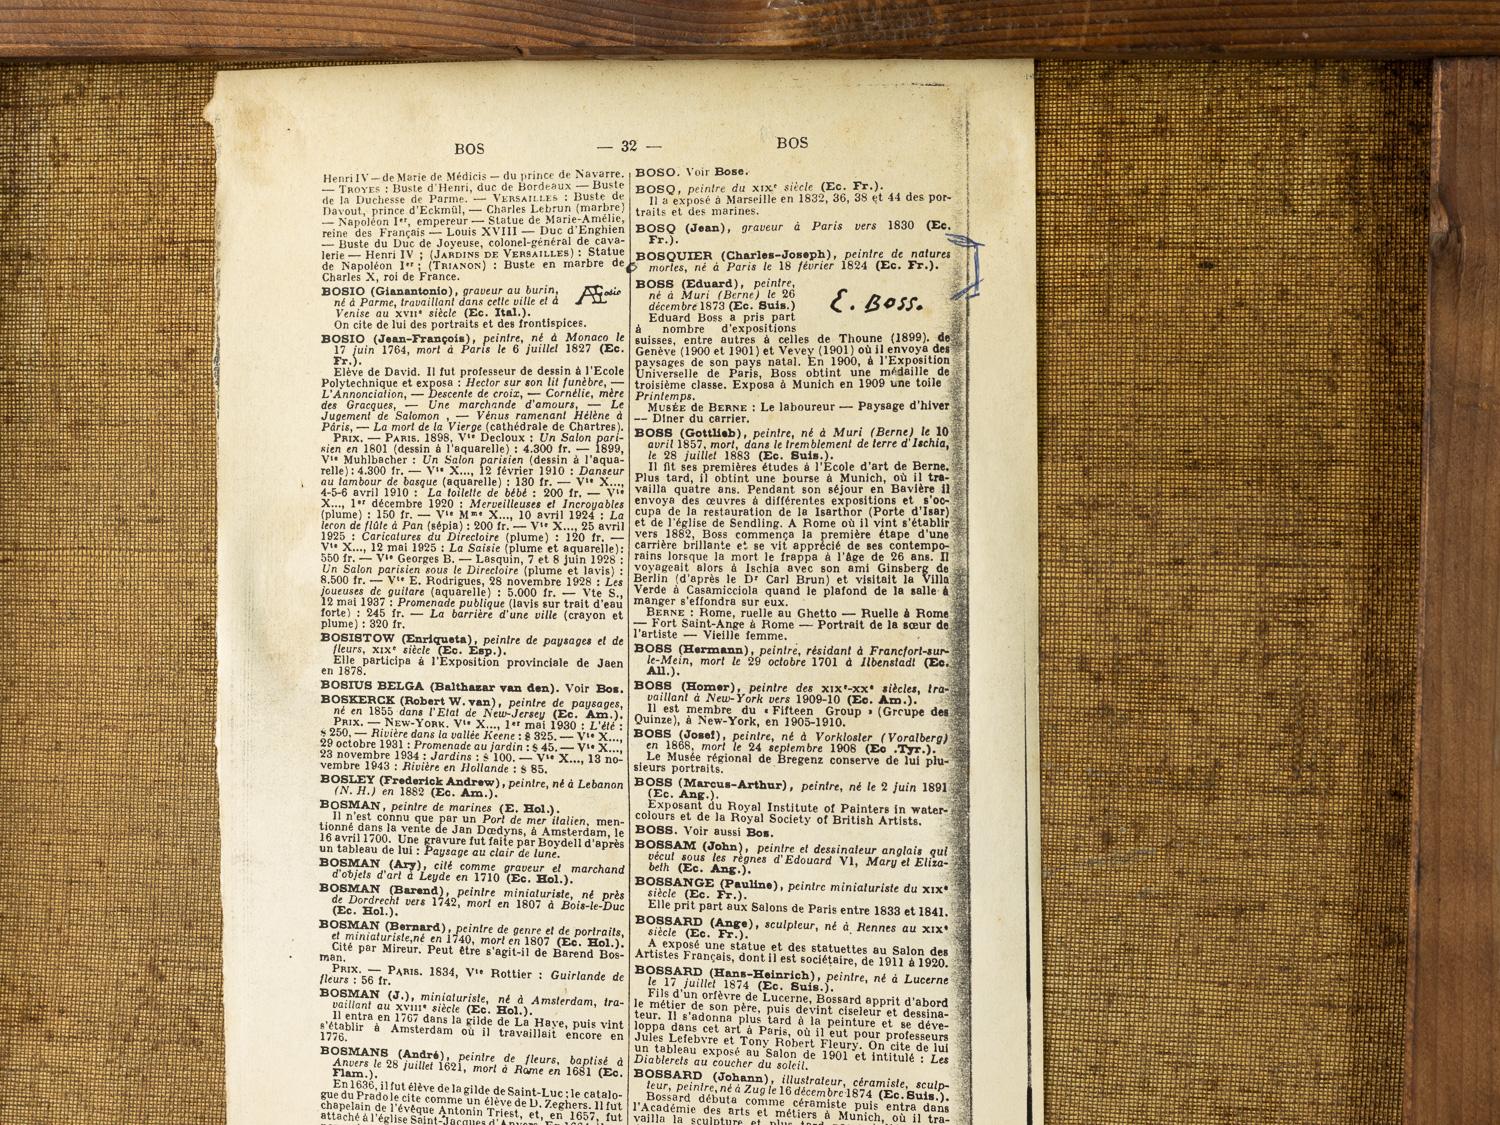 BOS — 32 — BOS
Henri IV — de Marie de Médicis — du prince de Navarre.
— TROYES : Buste d'Henri, duc de Bordeaux — Buste
de la Duchesse de Parme. — VERSAILLES : Buste de
Davout, prince d'Eckmül, — Charles Lebrun (marbre)
— Napoléon Iᵉʳ, empereur — Statue de Marie-Amélie,
reine des Français — Louis XVIII — Duc d'Enghien
— Buste du Duc de Joyeuse, colonel-général de cava-
lerie — Henri IV ; (JARDINS DE VERSAILLES) : Statue
de Napoléon Iᵉʳ ; (TRIANON) : Buste en marbre de
Charles X, roi de France.
BOSIO (Gianantonio), graveur au burin,
né à Parme, travaillant dans cette ville et à
Venise au XVIIᵉ siècle (Ec. Ital.).
On cite de lui des portraits et des frontispices.
BOSIO (Jean-François), peintre, né à Monaco le
17 juin 1764, mort à Paris le 6 juillet 1827 (Ec.
Fr.).
Elève de David. Il fut professeur de dessin à l'Ecole
Polytechnique et exposa : Hector sur son lit funèbre, —
L'Annonciation, — Descente de croix, — Cornélie, mère
des Gracques, — Une marchande d'amours, — Le
Jugement de Salomon , — Vénus ramenant Hélène à
Pâris, — La mort de la Vierge (cathédrale de Chartres).
PRIX. — PARIS. 1898, Vᵗᵉ Decloux : Un Salon pari-
sien en 1801 (dessin à l'aquarelle) : 4.300 fr. — 1899,
Vᵗᵉ Muhlbacher : Un Salon parisien (dessin à l'aqua-
relle) : 4.300 fr. — Vᵗᵉ X..., 12 février 1910 : Danseur
au tambour de basque (aquarelle) : 130 fr. — Vᵗᵉ X...,
4-5-6 avril 1910 : La toilette de bébé : 200 fr. — Vᵗᵉ
X..., 1ᵉʳ décembre 1920 : Merveilleuses et Incroyables
(plume) : 150 fr. — Vᵗᵉ Mᵐᵉ X..., 10 avril 1924 : La
leron de flûte à Pan (sépia) : 200 fr. — Vᵗᵉ X..., 25 avril
1925 : Caricatures du Directoire (plume) : 120 fr. —
Vᵗᵉ X..., 12 mai 1925 : La Saisie (plume et aquarelle) :
550 fr. — Vᵗᵉ Georges B. — Lasquin, 7 et 8 juin 1928 :
Un Salon parisien sous le Directoire (plume et lavis) :
8.500 fr. — Vᵗᵉ E. Rodrigues, 28 novembre 1928 : Les
joueuses de guitare (aquarelle) : 5.000 fr. — Vte S.,
12 mai 1937 : Promenade publique (lavis sur trait d'eau
forte) : 245 fr. — La barrière d'une ville (crayon et
plume) : 320 fr.
BOSISTOW (Enriqueta), peintre de paysages et de
fleurs, XIXᵉ siècle (Ec. Esp.).
Elle participa à l'Exposition provinciale de Jaen
en 1878.
BOSIUS BELGA (Balthazar van den). Voir Bos.
BOSKERCK (Robert W. van), peintre de paysages,
né en 1855 dans l'Etat de New-Jersey (Ec. Am.).
PRIX. — NEW-YORK. Vᵗᵉ X..., 1ᵉʳ mai 1930 : L'été :
$ 250, — Rivière dans la vallée Keene : $ 325. — Vᵗᵉ X...,
29 octobre 1931 : Promenade au jardin : $ 45. — Vᵗᵉ X...,
23 novembre 1934 : Jardins : $ 100. — Vᵗᵉ X..., 13 no-
vembre 1943 : Rivière en Hollande : $ 85.
BOSLEY (Frederick Andrew), peintre, né à Lebanon
(N. H.) en 1882 (Ec. Am.).
BOSMAN, peintre de marines (E. Hol.).
Il n'est connu que par un Port de mer italien, men-
tionné dans la vente de Jan Dœdyns, à Amsterdam, le
16 avril 1700. Une gravure fut faite par Boydell d'après
un tableau de lui : Paysage au clair de lune.
BOSMAN (Ary), cité comme graveur et marchand
d'objets d'art à Leyde en 1710 (Ec. Hol.).
BOSMAN (Barend), peintre miniaturiste, né près
de Dordrecht vers 1742, mort en 1807 à Bois-le-Duc
(Ec. Hol.).
BOSMAN (Bernard), peintre de genre et de portraits,
et miniaturiste, né en 1740, mort en 1807 (Ec. Hol.).
Cité par Mireur. Peut être s'agit-il de Barend Bos-
man.
PRIX. — PARIS. 1834, Vᵗᵉ Rottier : Guirlande de
fleurs : 56 fr.
BOSMAN (J.), miniaturiste, né à Amsterdam, tra-
vaillant au XVIIIᵉ siècle (Ec. Hol.).
Il entra en 1767 dans la gilde de La Haye, puis vint
s'établir à Amsterdam où il travaillait encore en
1776.
BOSMANS (André), peintre de fleurs, baptisé à
Anvers le 28 juillet 1621, mort à Rome en 1681 (Ec.
Flam.).
En 1636, il fut élève de la gilde de Saint-Luc ; le catalo-
gue du Prado le cite comme un élève de D. Zeghers. Il fut
chapelain de l'évêque Antonin Triest, et, en 1657, fut
attaché à l'église Saint-Jacques d'Anvers.
BOSO. Voir Bose.
BOSQ, peintre du XIXᵉ siècle (Ec. Fr.).
Il a exposé à Marseille en 1832, 36, 38 et 44 des por-
traits et des marines.
BOSQ (Jean), graveur à Paris vers 1830 (Ec.
Fr.).
BOSQUIER (Charles-Joseph), peintre de natures
mortes, né à Paris le 18 février 1824 (Ec. Fr.).
BOSS (Eduard), peintre,
né à Muri (Berne) le 26
décembre 1873 (Ec. Suis.)
E. Boss.
Eduard Boss a pris part
à nombre d'expositions
suisses, entre autres à celles de Thoune (1899). de
Genève (1900 et 1901) et Vevey (1901) où il envoya des
paysages de son pays natal. En 1900, à l'Exposition
Universelle de Paris, Boss obtint une médaille de
troisième classe. Exposa à Munich en 1909 une toile
Printemps.
MUSÉE de BERNE : Le laboureur — Paysage d'hiver
— Dîner du carrier.
BOSS (Gottlieb), peintre, né à Muri (Berne) le 10
avril 1857, mort, dans le tremblement de terre d'Ischia,
le 28 juillet 1883 (Ec. Suis.).
Il fit ses premières études à l'Ecole d'art de Berne.
Plus tard, il obtint une bourse à Munich, où il tra-
vailla quatre ans. Pendant son séjour en Bavière il
envoya des œuvres à différentes expositions et s'oc-
cupa de la restauration de la Isarthor (Porte d'Isar)
et de l'église de Sendling. A Rome où il vint s'établir
vers 1882, Boss commença la première étape d'une
carrière brillante et se vit apprécié de ses contempo-
rains lorsque la mort le frappa à l'âge de 26 ans. Il
voyageait alors à Ischia avec son ami Ginsberg de
Berlin (d'après le Dʳ Carl Brun) et visitait la Villa
Verde à Casamicciola quand le plafond de la salle à
manger s'effondra sur eux.
BERNE : Rome, ruelle au Ghetto — Ruelle à Rome
— Fort Saint-Ange à Rome — Portrait de la sœur de
l'artiste — Vieille femme.
BOSS (Hermann), peintre, résidant à Francfort-sur-
le-Mein, mort le 29 octobre 1701 à Ilbenstadt (Ec.
All.).
BOSS (Homer), peintre des XIXᵉ-XXᵉ siècles, tra-
vaillant à New-York vers 1909-10 (Ec. Am.).
Il est membre du « Fifteen Group » (Groupe des
Quinze), à New-York, en 1905-1910.
BOSS (Josef), peintre, né à Vorkloster (Voralberg)
en 1868, mort le 24 septembre 1908 (Ec .Tyr.).
Le Musée régional de Bregenz conserve de lui plu-
sieurs portraits.
BOSS (Marcus-Arthur), peintre, né le 2 juin 1891
(Ec. Ang.).
Exposant du Royal Institute of Painters in water-
colours et de la Royal Society of British Artists.
BOSS. Voir aussi Bos.
BOSSAM (John), peintre et dessinateur anglais qui
vécut sous les règnes d'Edouard VI, Mary et Eliza-
beth (Ec. Ang.).
BOSSANGE (Pauline), peintre miniaturiste du XIXᵉ
siècle (Ec. Fr.).
Elle prit part aux Salons de Paris entre 1833 et 1841.
BOSSARD (Ange), sculpteur, né à Rennes au XIXᵉ
siècle (Ec. Fr.).
A exposé une statue et des statuettes au Salon des
Artistes Français, dont il est sociétaire, de 1911 à 1920.
BOSSARD (Hans-Heinrich), peintre, né à Lucerne
le 17 juillet 1874 (Ec. Suis.).
Fils d'un orfèvre de Lucerne, Bossard apprit d'abord
le métier de son père, puis devint ciseleur et dessina-
teur. Il s'adonna plus tard à la peinture et se déve-
loppa dans cet art à Paris, où il eut pour professeurs
Jules Lefebvre et Tony Robert Fleury. On cite de lui
un tableau exposé au Salon de 1901 et intitulé : Les
Diablerets au coucher du soleil.
BOSSARD (Johann), illustrateur, céramiste, sculp-
teur, peintre, né à Zug le 16 décembre 1874 (Ec. Suis.).
Bossard débuta comme céramiste puis entra dans
l'Académie des arts et métiers à Munich, où il tra-
vailla la sculpture et plus tard